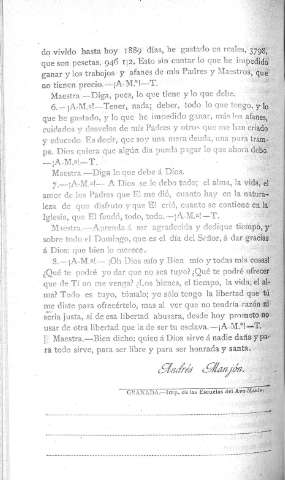 do vivido hasta hoy 1889 días, he gastado en reales, 3798,
que son pesetas, 946 1¡2. Esto sin contar lo que he impedido
ganar y los trabajos y afanes de mis Padres y Maestros, que
no tienen precio.—¡A-M.ª!—T.
Maestra.—Diga, pues, lo que tiene y lo que debe.
6.—¡A-M.ª!—Tener, nada; deber, todo lo que tengo, y lo
que he gastado, y lo que he impedido ganar, más los afanes,
cuidados y desvelos de mis Padres y otros que me han criado
y educado. Es decir, que soy una mera deuda, una pura tram-
pa. Dios quiera que algún día pueda pagar lo que ahora debo
—¡A-M.ª!—T.
Maestra—Diga lo que debe á Dios.
7.—¡A-M.ª!—A Dios se le debe todo; el alma, la vida, el
amor de los Padres que El me dió, cuanto hay en la natura-
leza de que disfruto y que El crió, cuanto se contiene en la
Iglesia, que El fundó, todo, todo.—¡A-M.ª!—T.
Maestra.—Aprenda á ser agradecida y dedique tiempo, y
sobre todo el Domingo, que es el día del Señor, á dar gracias
á Dios; que bien lo merece.
8.—¡A-M.ª!—¡Oh Dios mío y Bien mío y todas mis cosas!
¿Qué te podré yo dar que no sea tuyo? ¿Qué te podré ofrecer
que de Ti no me venga? ¿Los bienes, el tiempo, la vida, el al-
ma? Todo es tuyo, tómalo; yo sólo tengo la libertad que tú
me diste para ofrecértelo, mas al ver que no tendría razón ni
sería justa, si de esa libertad abusara, desde hoy prometo no
usar de otra libertad que la de ser tu esclava.—¡A-M.ª!—T.
Maestra.—Bien dicho; quien á Dios sirve á nadie daña y pa-
ra todo sirve, para ser libre y para ser honrada y santa.
Andrés Manjón.
GRANADA.—Imp. de las Escuelas del Ave-María.